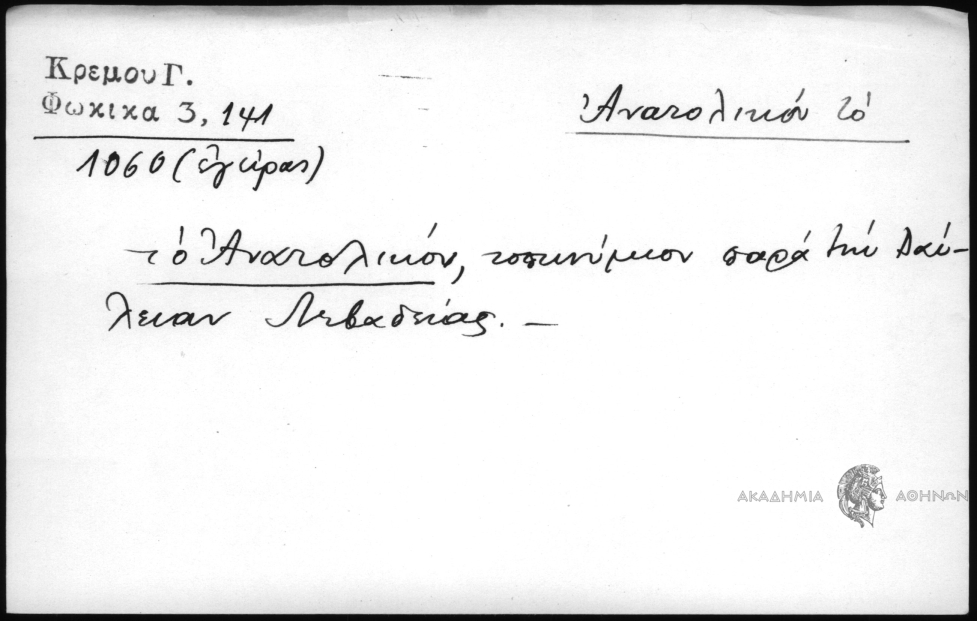 Κρεμου Γ.
Φωκικα 3, 141
1060 (ἐγείρας)
Ἀνατολικόν τό
τό Ἀνατολικόν, τοπωνύμιον παρά τήν Δαύ-
λειαν Λεβαδείας. —
ΑΚΑΔΗΜΙΑ ΑΘΗΝΩΝ